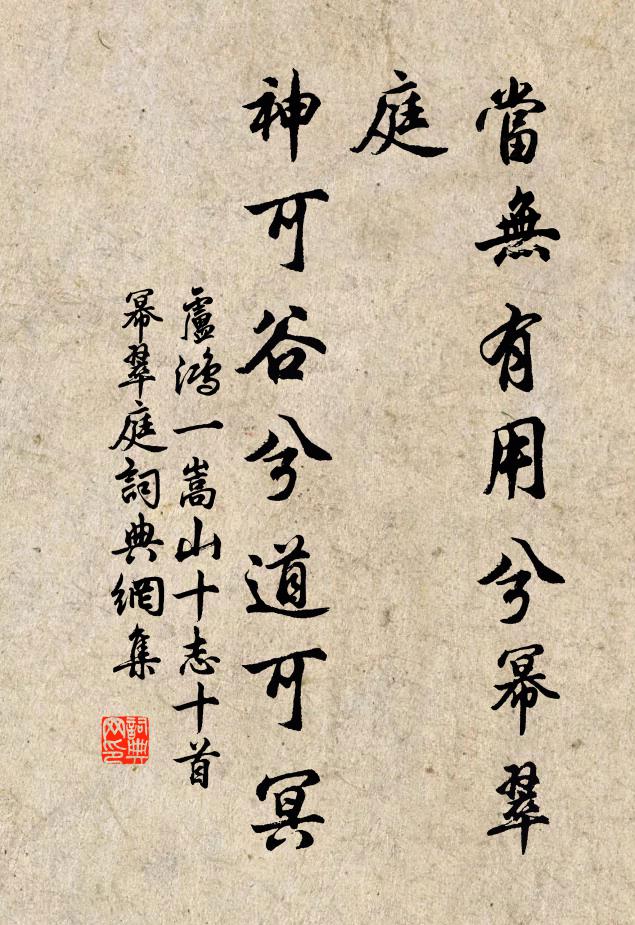 當無有用兮冪翠
庭
神可谷兮道可冥
盧鴻一嵩山十志十首
冪翠庭詞典網集
詞典
网印